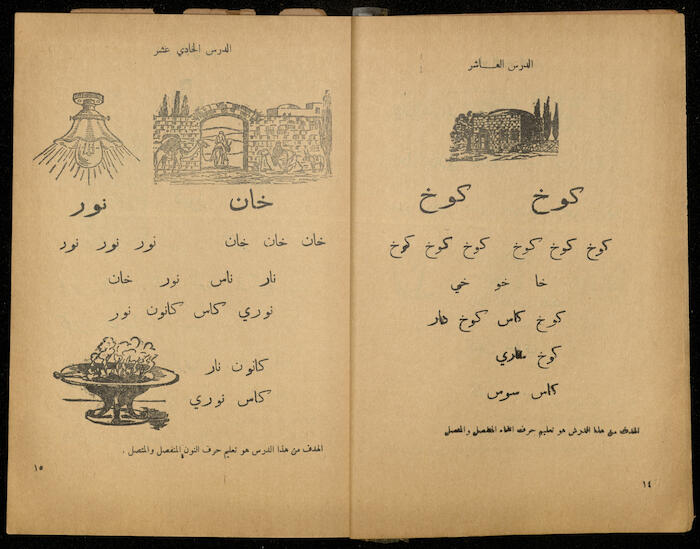 الدرس العـاشر
كوخ كوخ
كوخ كوخ كوخ كوخ كوخ كوخ
خا خو خي
كوخ كاس كوخ
كوخ
كاس سوس
الهدف من هذا الدرس هو تعليم حرف الخاء المنفصل والمتصل
١٤
الدرس الحادي عشر
خان نور
خان خان خان نور نور نور
نار ناس نور خان
نوري كاس كانون نور
كانون نار
كاس نوري
الهدف من هذا الدرس هو تعليم حرف النون المنفصل والمتصل .
١٥